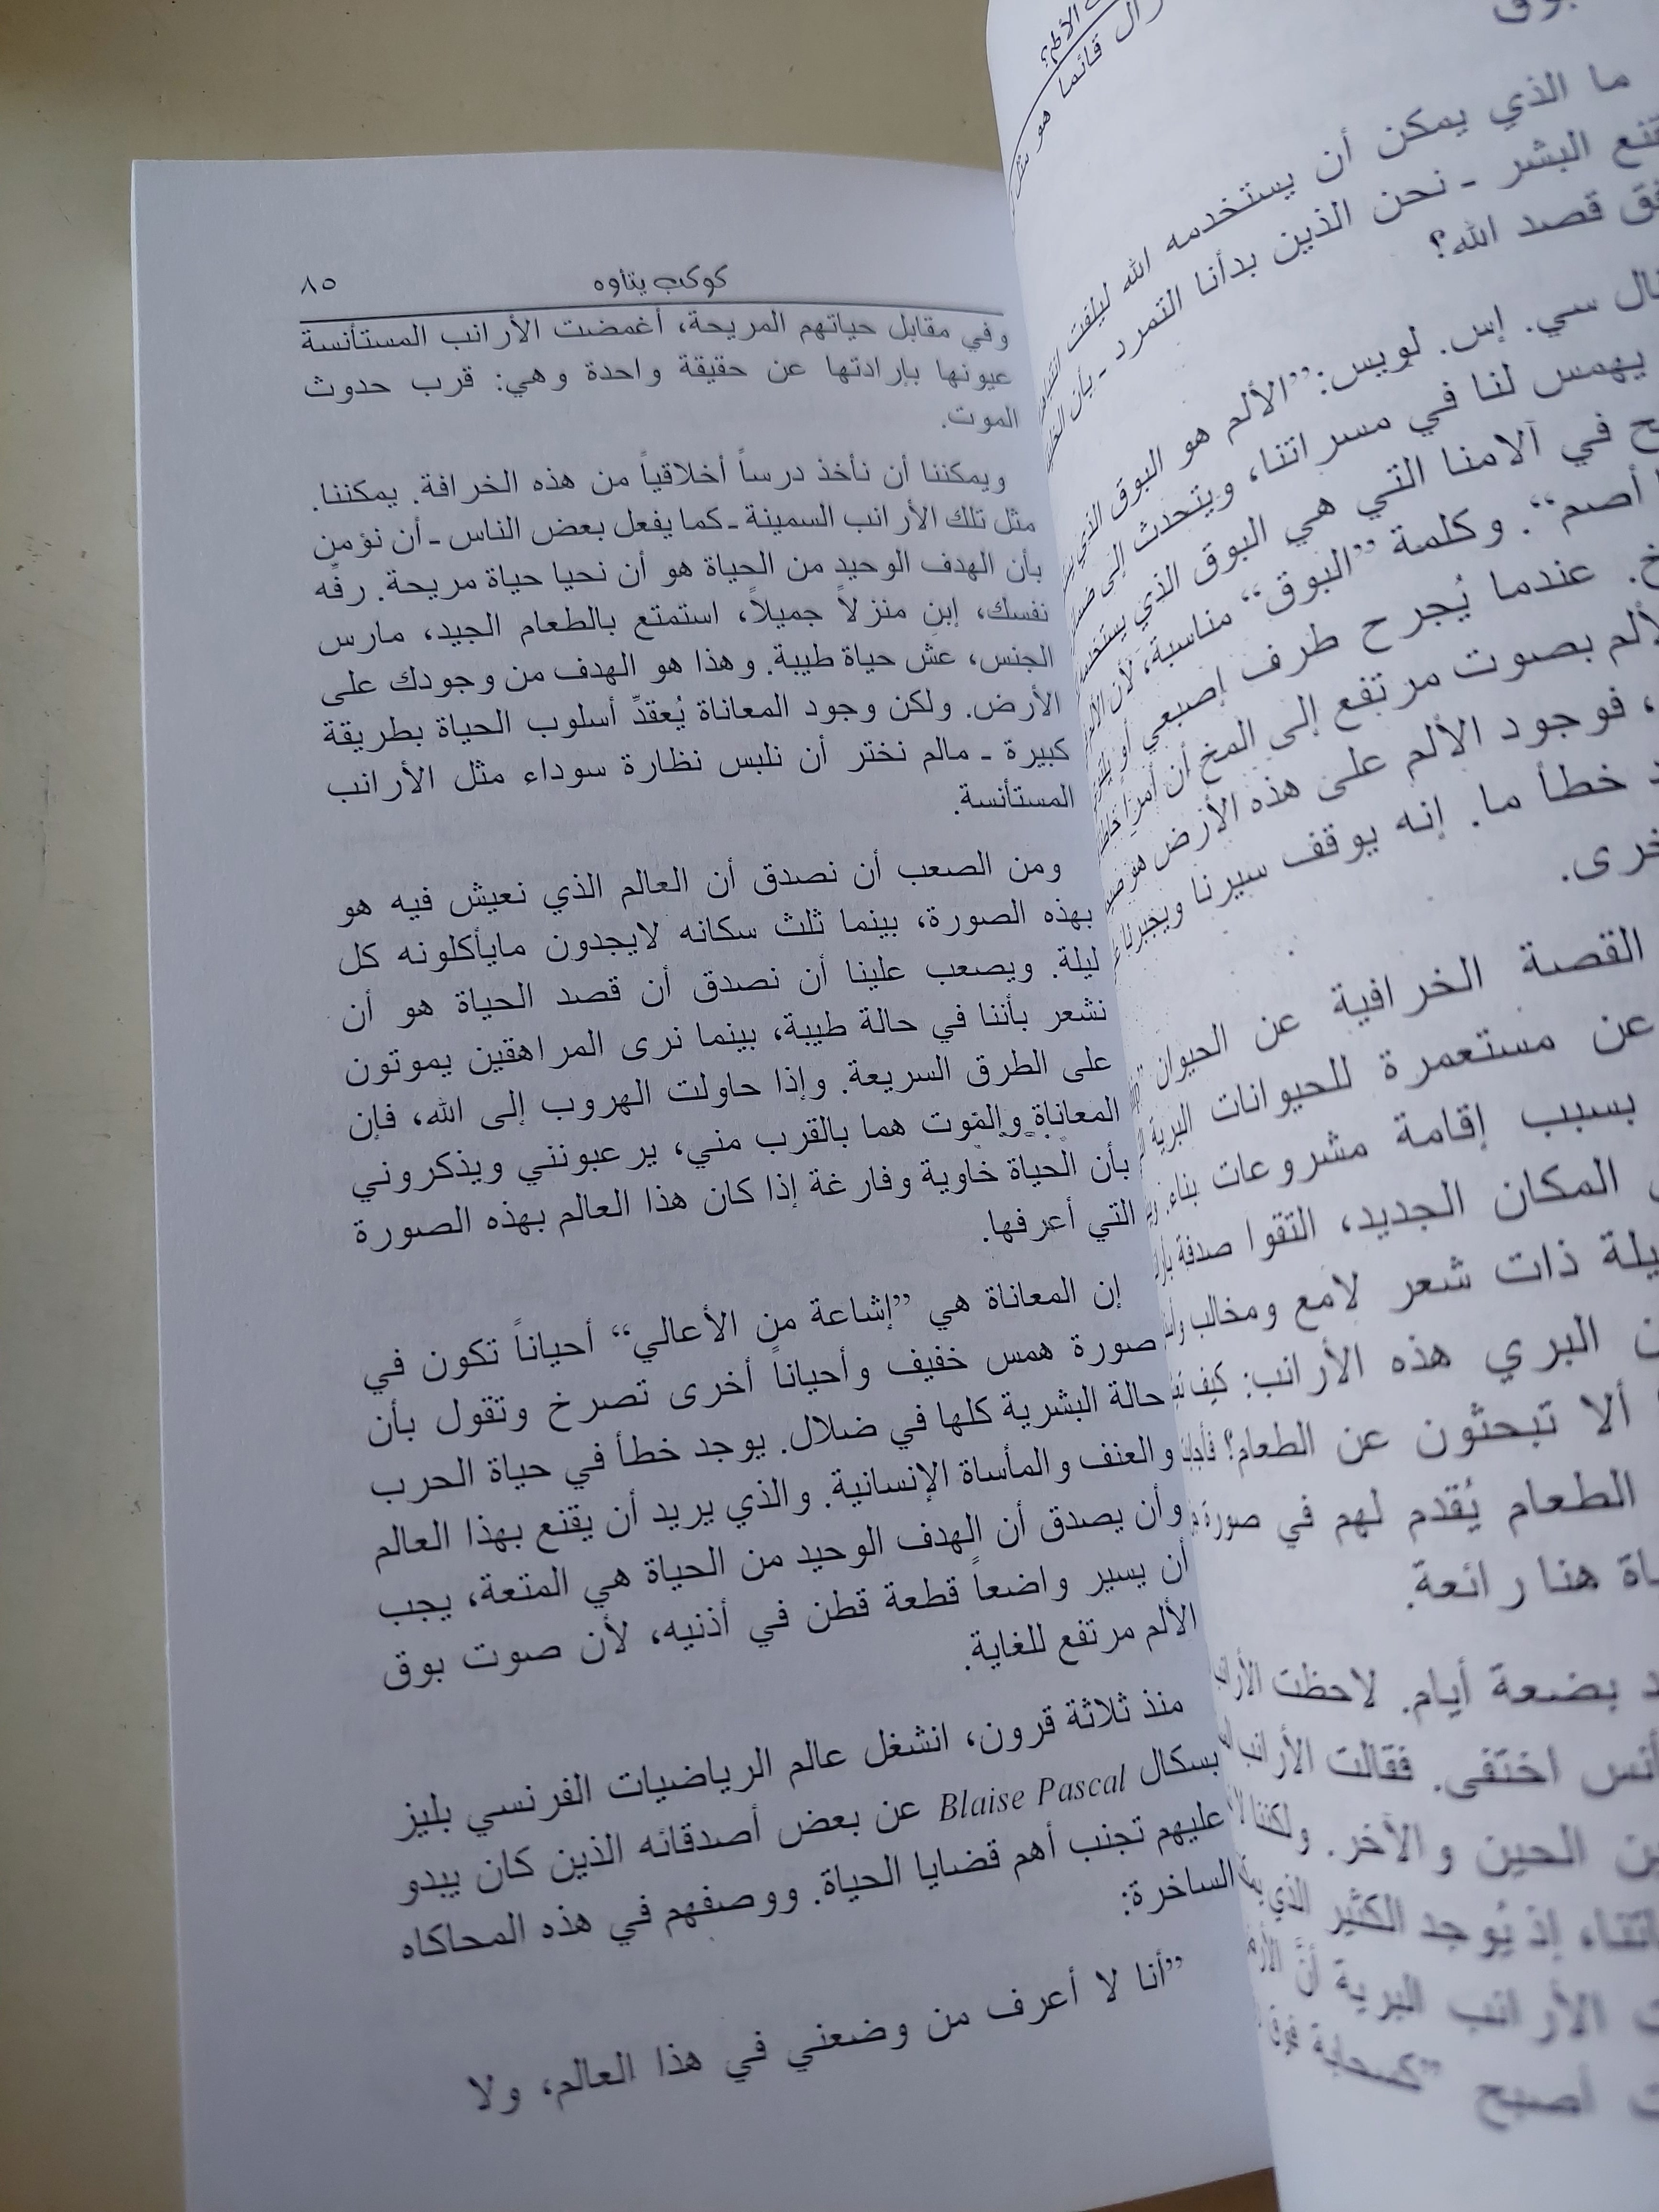 الألم؟
ما الذي يمكن أن يستخدمه الله ليلفت
البشر ـ نحن الذين بدأنا التمرد ـ بأن
قصد الله؟
سي. إس. لويس: ”الألم هو البوق الذي
يهمس لنا في مسراتنا، ويتحدث إلى
في آلامنا التي هي البوق الذي
أصم“. وكلمة ”البوق“ مناسبة، لأن
عندما يُجرح طرف إصبعي أو
بصوت مرتفع إلى المخ أن أمراً
، فوجود الألم على هذه الأرض هو
خطأ ما. إنه يوقف سيرنا ويجبرنا
القصة الخرافية عن الحيوان
عن مستعمرة للحيوانات البرية
بسبب إقامة مشروعات بناء.
المكان الجديد، التقوا صدفة
ذات شعر لامع ومخالب
البري هذه الأرانب: كيف
ألا تبحثون عن الطعام؟
الطعام يُقدم لهم في صورة
هنا رائعة.
بضعة أيام. لاحظت
اختفى. فقالت الأرانب
الحين والآخر. ولكننا
إذ يُوجد الكثير الذي
الأرانب البرية أنَّ
أصبح ”كسحابة فوق
كوكب يتأوه ٨٥
وفي مقابل حياتهم المريحة، أغمضت الأرانب المستأنسة
عيونها بإرادتها عن حقيقة واحدة وهي: قرب حدوث
الموت.
ويمكننا أن نأخذ درساً أخلاقياً من هذه الخرافة. يمكننا.
مثل تلك الأرانب السمينة ـ كما يفعل بعض الناس ـ أن نؤمن
بأن الهدف الوحيد من الحياة هو أن نحيا حياة مريحة. رفِّه
نفسك، إبنِ منزلاً جميلاً، استمتع بالطعام الجيد، مارس
الجنس، عش حياة طيبة. وهذا هو الهدف من وجودك على
الأرض. ولكن وجود المعاناة يُعقدِّ أسلوب الحياة بطريقة
كبيرة ـ مالم نختر أن نلبس نظارة سوداء مثل الأرانب
المستأنسة.
ومن الصعب أن نصدق أن العالم الذي نعيش فيه هو
بهذه الصورة، بينما ثلث سكانه لايجدون مايأكلونه كل
ليلة. ويصعب علينا أن نصدق أن قصد الحياة هو أن
نشعر بأننا في حالة طيبة، بينما نرى المراهقين يموتون
على الطرق السريعة. وإذا حاولت الهروب إلى الله، فإن
المعاناة والموت هما بالقرب مني، يرعبونني ويذكروني
بأن الحياة خاوية وفارغة إذا كان هذا العالم بهذه الصورة
التي أعرفها.
إن المعاناة هي ”إشاعة من الأعالي“ أحياناً تكون في
صورة همس خفيف وأحياناً أخرى تصرخ وتقول بأن
حالة البشرية كلها في ضلال. يوجد خطأ في حياة الحرب
والعنف والمأساة الإنسانية. والذي يريد أن يقنع بهذا العالم
وأن يصدق أن الهدف الوحيد من الحياة هي المتعة، يجب
أن يسير واضعاً قطعة قطن في أذنيه، لأن صوت بوق
الألم مرتفع للغاية.
منذ ثلاثة قرون، انشغل عالم الرياضيات الفرنسي بليز
بسكال Blaise Pascal عن بعض أصدقائه الذين كان يبدو
عليهم تجنب أهم قضايا الحياة. ووصفهم في هذه المحاكاه
الساخرة:
”أنا لا أعرف من وضعني في هذا العالم، ولا